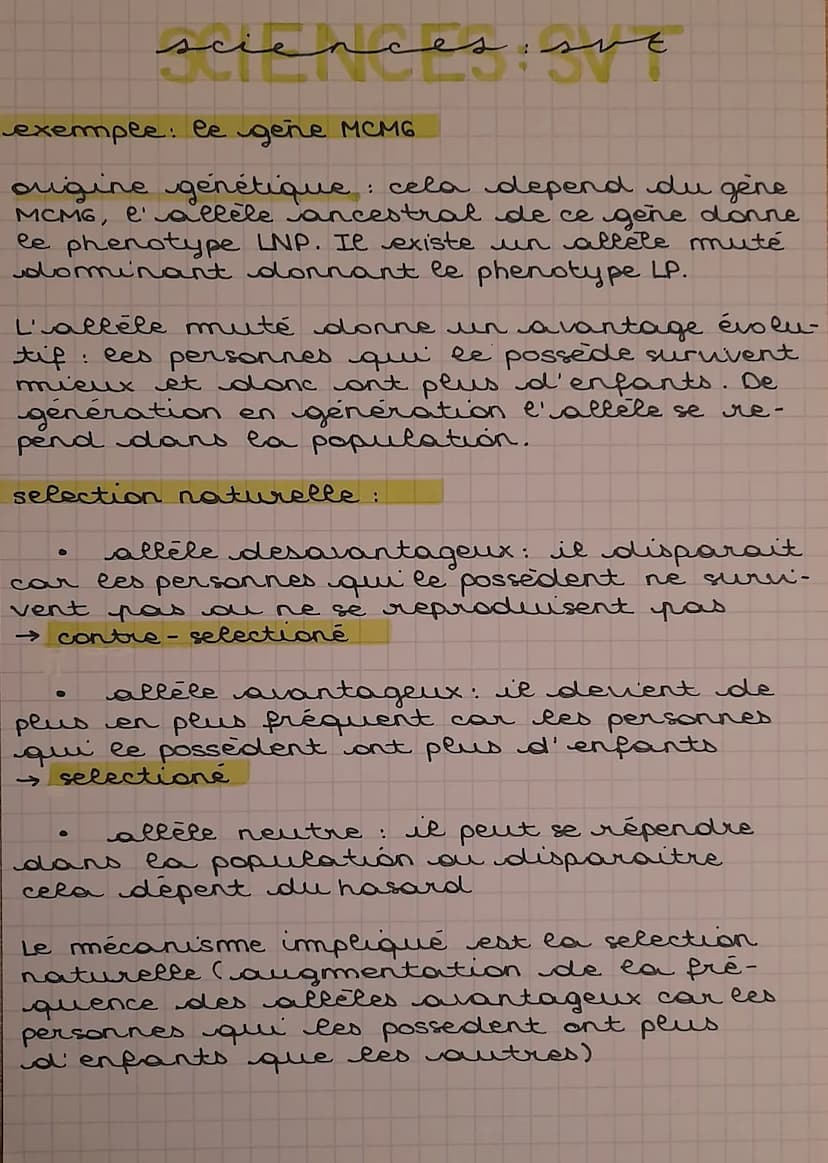 SCIENCES: SVT
sciences: svt
exemple: le gène MCM6
origine génétique : cela depend du gène
MCM6, l'allèle ancestral de ce gène donne
le phenotype LNP. Il existe un allèle muté
dominant donnant le phenotype LP.
L'allèle muté donne un avantage évolu-
tif : les personnes qui le possède survivent
mieux et donc ont plus d'enfants. De
génération en génération l'allèle se re-
pend dans la population.
selection naturelle :
• allèle desavantageux: il disparait
car les personnes qui le possèdent ne survi-
vent pas ou ne se reproduisent pas
→ contre-selectioné
• allèle avantageux: il devient de
plus en plus fréquent car les personnes
qui le possèdent ont plus d'enfants
→ selectioné
• allèle neutre : il peut se répendre
dans la population ou disparaitre
cela dépent du hasard
Le mécanisme impliqué est la selection
naturelle (augmentation de la fré-
quence des allèles avantageux car les
personnes qui les possedent ont plus
d'enfants que les autres)